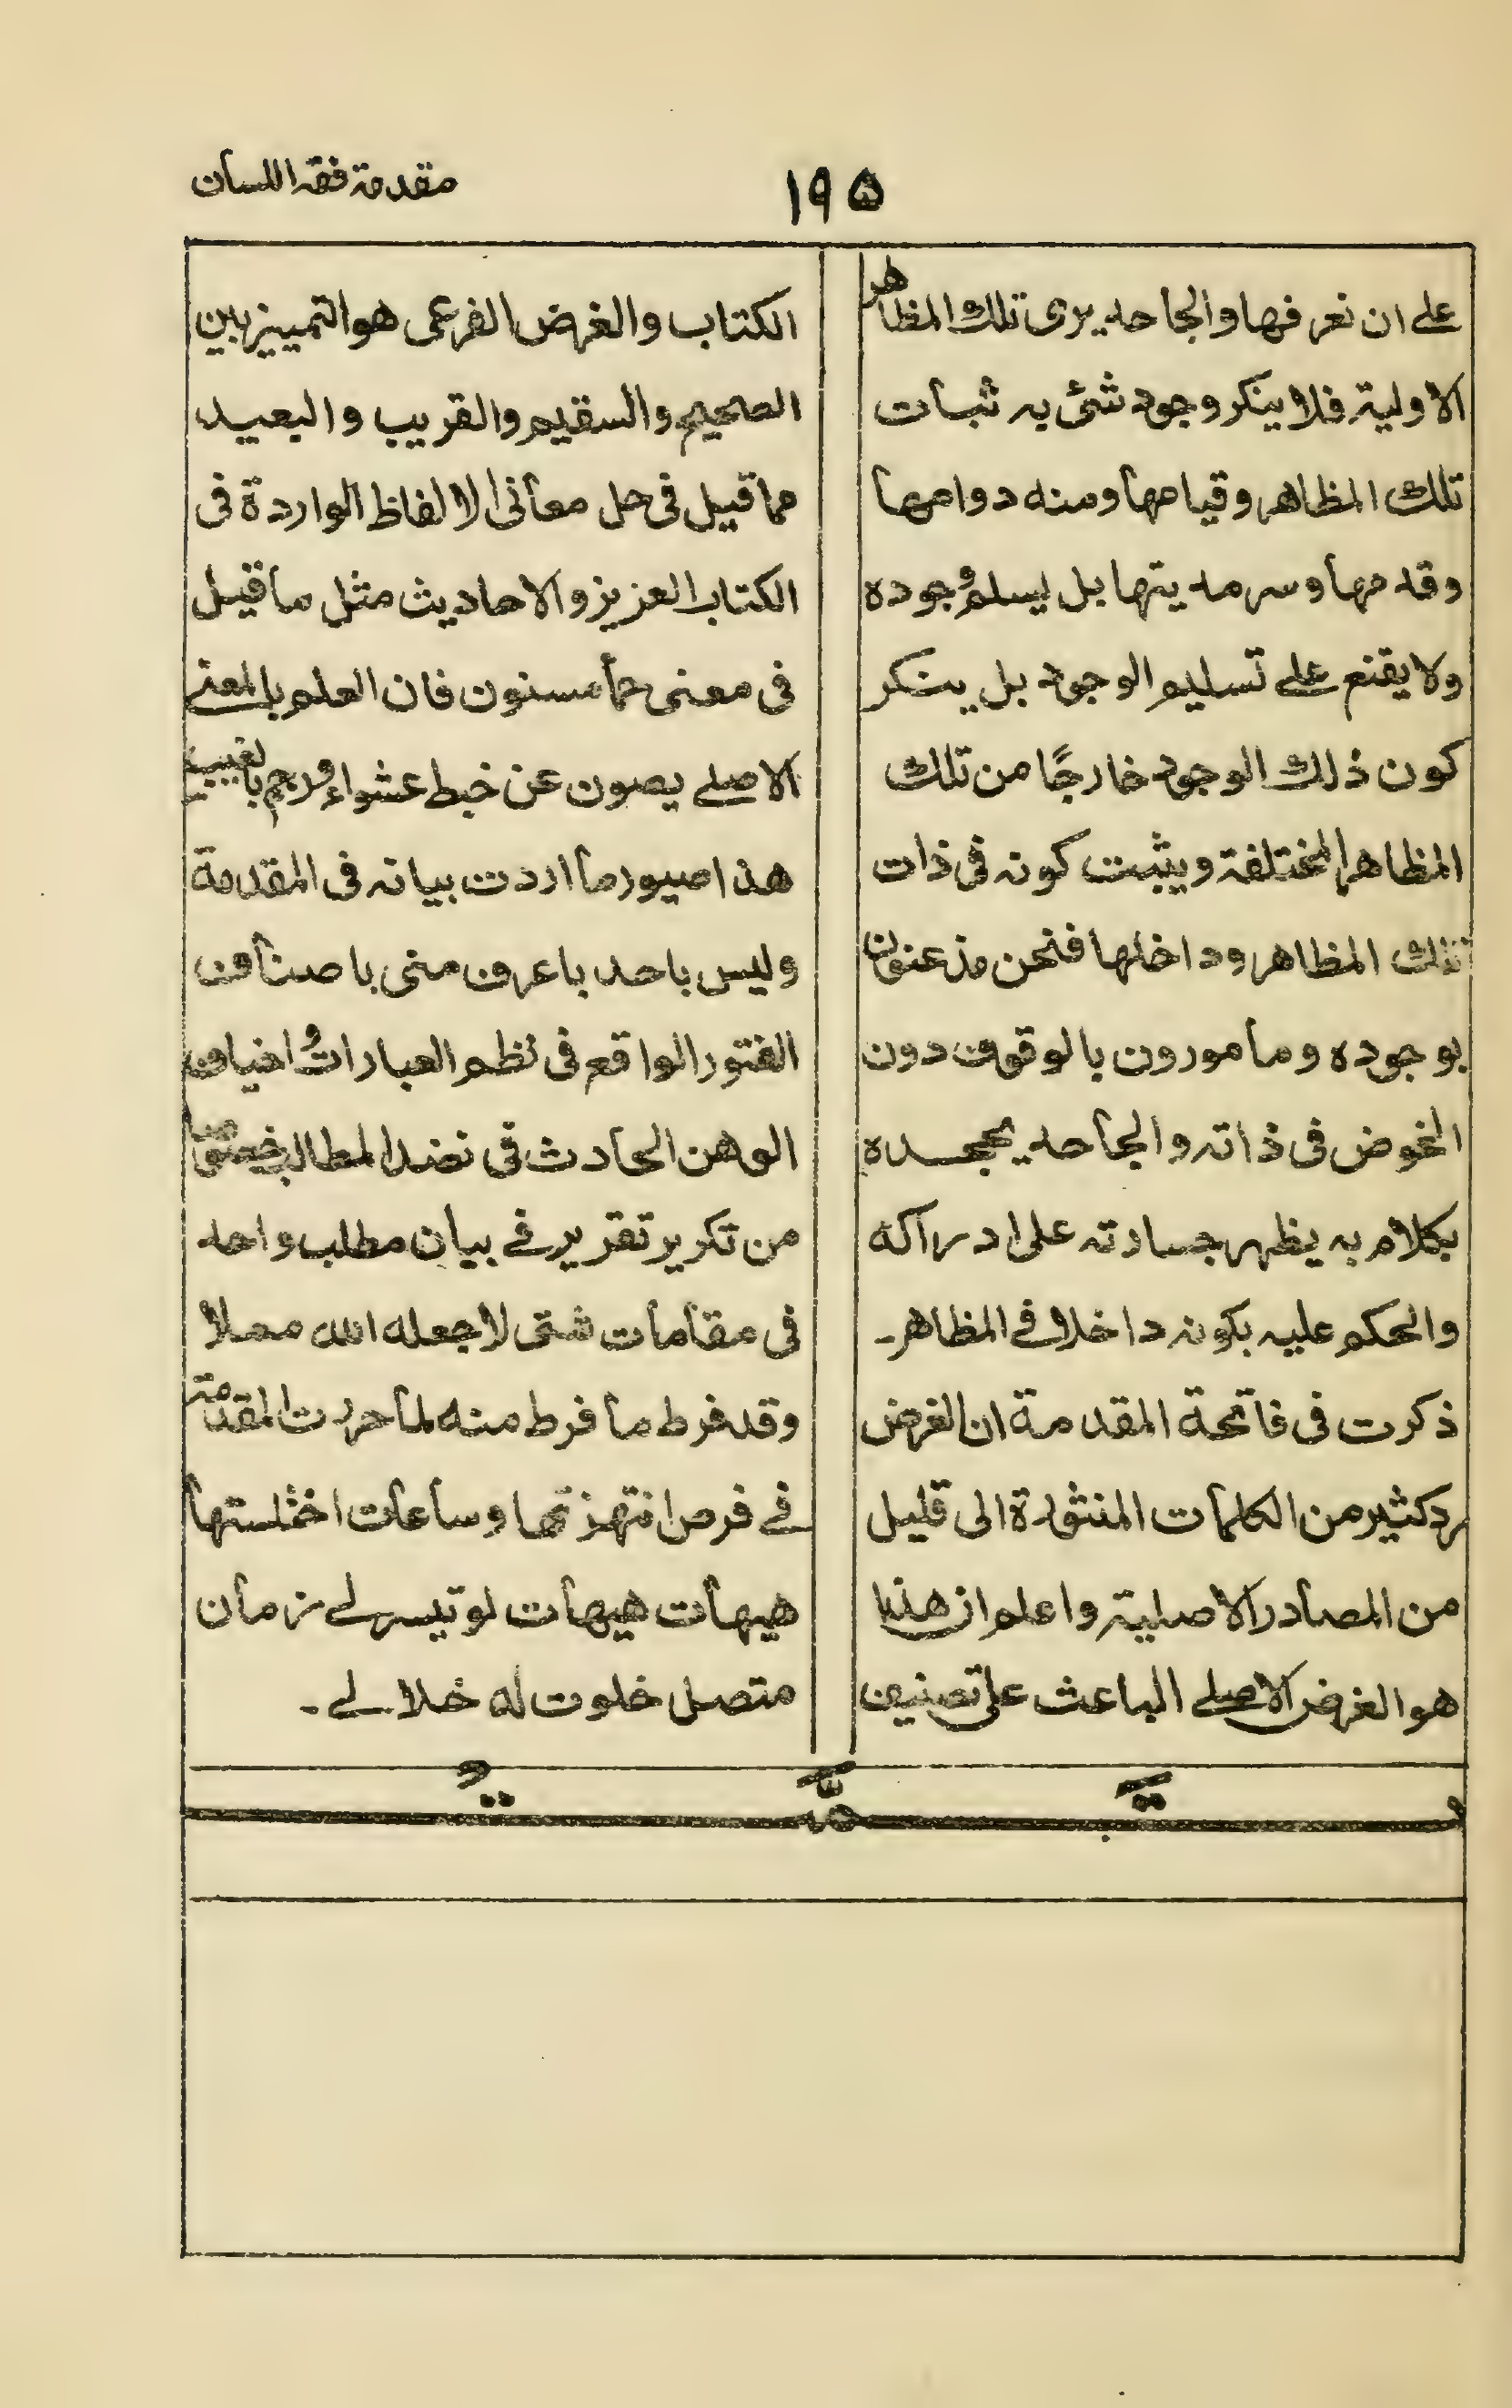 مقدمة فقه اللسان
١٩٥
على ان نعرفها والجاحد يرى تلك المظاهر
الاولية فلا ينكر وجود شئ به ثبات
تلك المظاهر وقيامها ومنه دوامها
وقدمها وسرمديتها بل يسلم وجوده
ولا يقنع على تسليم الوجود بل ينكر
كون ذلك الوجود خارجًا من تلك
المظاهر المختلفة ويثبت كونه فى ذات
تلك المظاهر وداخلها فنحن مذعنون
بوجوده ومأمورون بالوقوف دون
الخوض فى ذاته والجاحد يجحده
بكلام به يظهر جسارته على ادراكه
والحكم عليه بكونه داخلا فى المظاهر۔
ذكرت فى فاتحة المقدمة ان الغرض
رد كثير من الكلمات المنثورة الى قليل
من المصادر الاصلية واعلم ان هذا
هو الغرض الاصلى الباعث على تصنيف
الكتاب والغرض الفرعى هو التمييز بين
الصحيح والسقيم والقريب والبعيد
مما قيل فى حل معانى الالفاظ الواردة فى
الكتاب العزيز والاحاديث مثل ما قيل
فى معنى حمأ مسنون فان العلم بالمعنى
الاصلى يصون عن خبط عشواء ورجم بالغيب
هذا ميسور ما اردت بيانه فى المقدمة
وليس باحد باعرف منى باصناف
الفتور الواقع فى نظم العبارات واخياف
الوهن الحادث فى نضد المطالب
من تكرير تقرير فى بيان مطلب واحد
فى مقامات شتى لا جعله الله مملا
وقد فرط ما فرط منه لما حررت المقدمة
فى فرص انتهزتها وساعات اختلستها
هيهات هيهات لو تيسر لى زمان
متصل خلوت له خلا لى۔